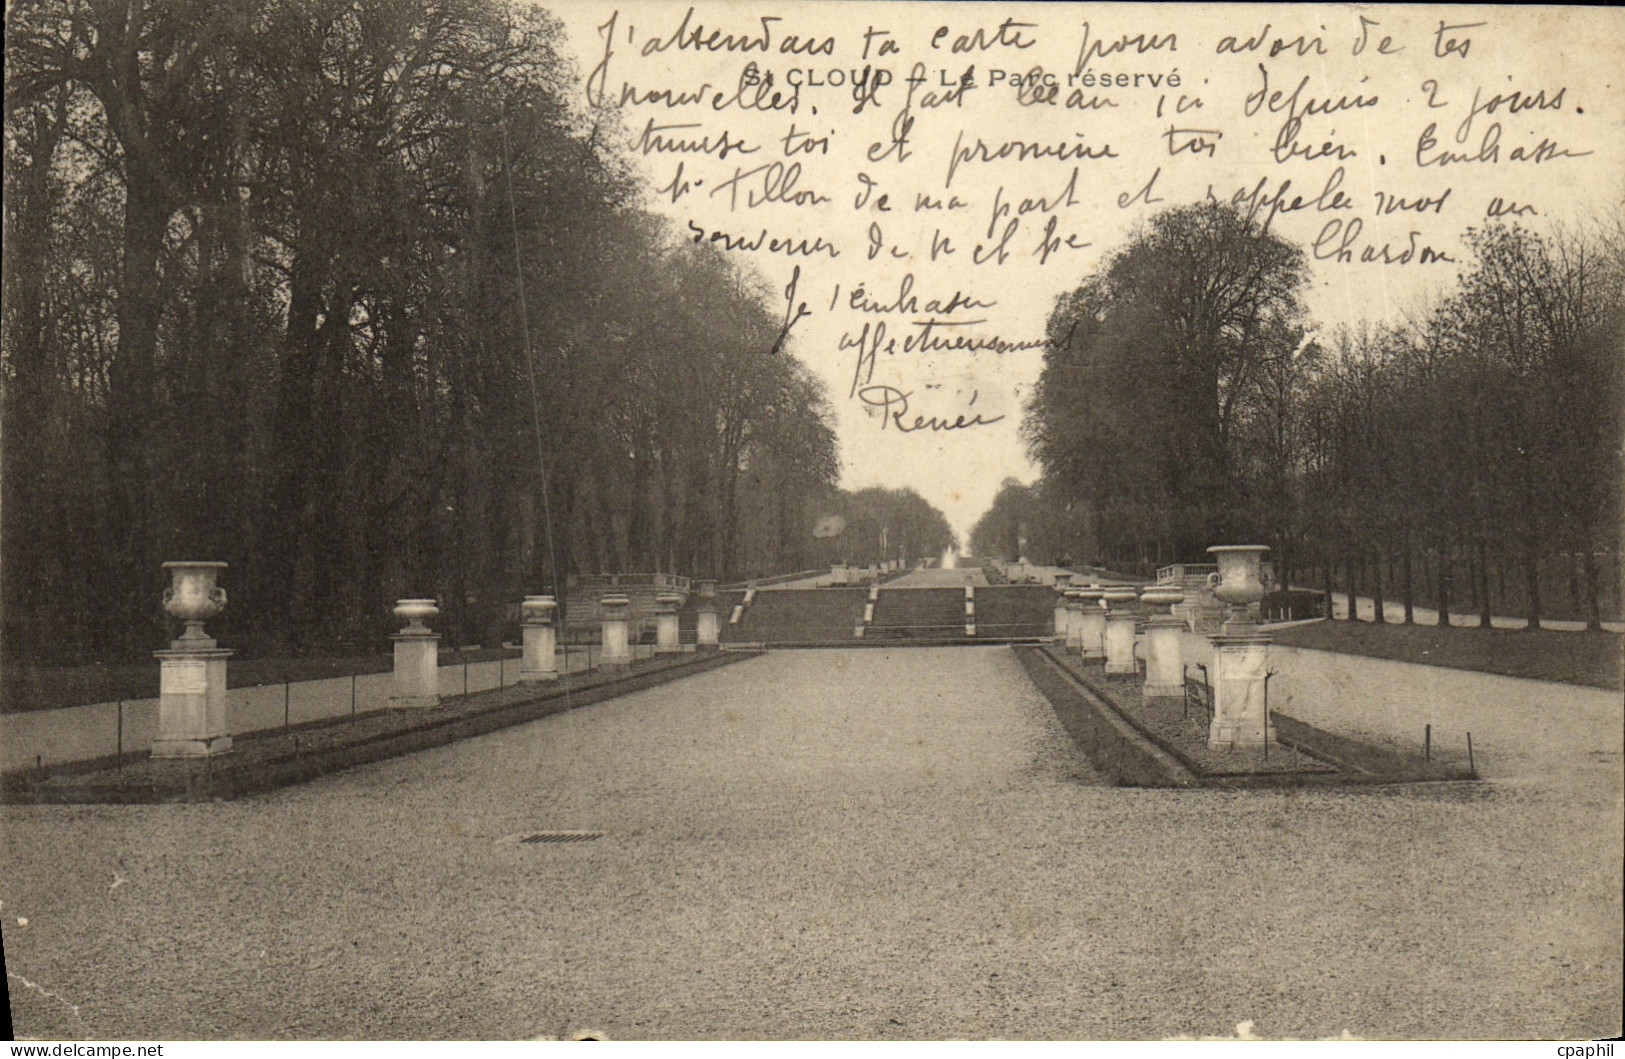 J'attendais ta carte pour avoir de tes
St CLOUD - Le Parc réservé
nouvelles. Il fait beau ici depuis 2 jours.
Amuse toi et promène toi bien. Embrasse
Tillon de ma part et rappelle moi au
souvenir de M et Me Chardon
Je t'embrasse
affectueusement
Renée
www.delcampe.net
cpaphil